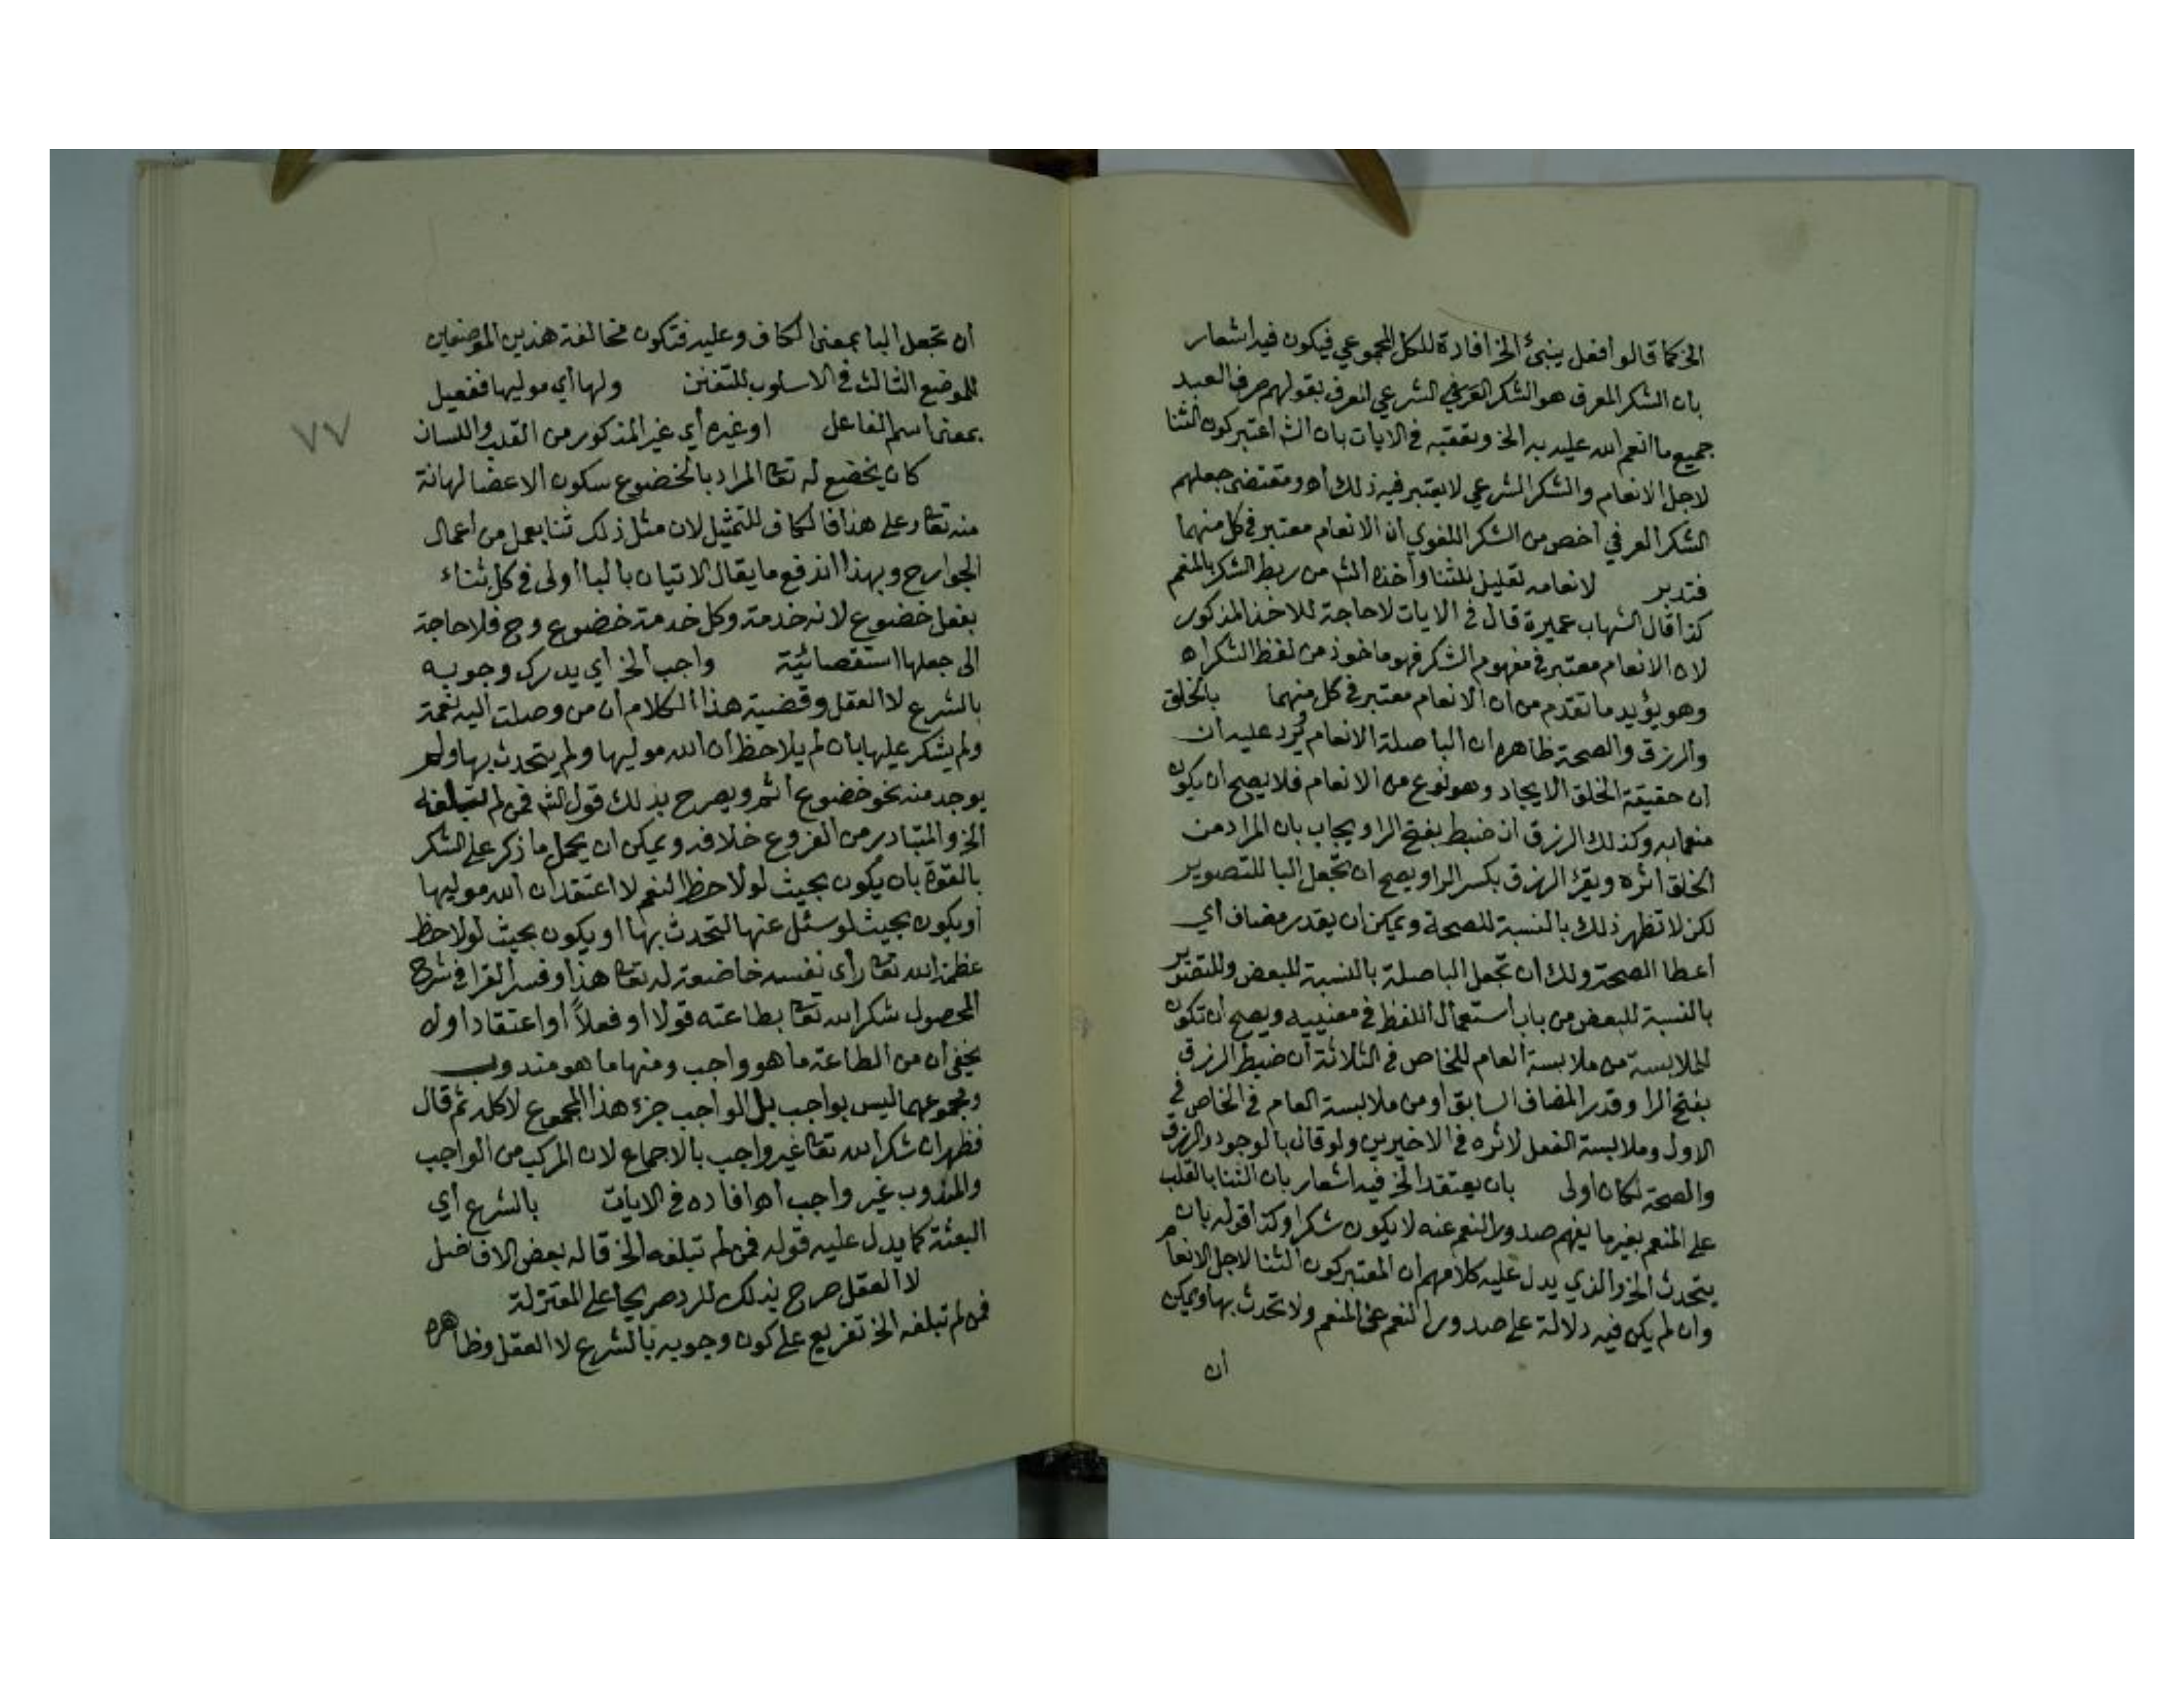 الخ كما قالوا فعل ينبئ الخ افادة للكل المجموعي فيكون فيه اشعار
بان الشكر المعرف هو الشكر العرفي الشرعي المعرف بقولهم صرف العبد
جميع ما انعم الله عليه به الخ وتعقبه في الآيات بان الش اعتبر كون الثنا
لاجل الانعام والشكر الشرعي لا يعتبر فيه ذلك أه ومقتضى جعلهم
الشكر العرفي أخص من الشكر اللغوي ان الانعام معتبر في كل منهما
فتدبر لانعامه تعليل للثنا وأخذه الش من ربط الشكر بالمنعم
كذا قال الشهاب عميرة قال في الايات لا حاجة للاخذ المذكور
لان الانعام معتبر في مفهوم الشكر فهو ماخوذ من لفظ الشكر اه
وهو يؤيد ما تقدم من ان الانعام معتبر في كل منهما بالخلق
والرزق والصحة ظاهره ان البا صلة الانعام ويرد عليه ان
ان حقيقة الخلق الايجاد وهو نوع من الانعام فلا يصح ان يكون
منعما به وكذلك الرزق ان ضبط بفتح الرا ويجاب بان المراد من
الخلق اثره ويقرئ الرزق بكسر الرا ويصح ان تجعل البا للتصوير
لكن لا تظهر ذلك بالنسبة للصحة ويمكن ان يقدر مضاف أي
اعطا الصحة ولك ان تجعل البا صلة بالنسبة للبعض وللتصوير
بالنسبة للبعض من باب استعمال اللفظ في معنييه ويصح ان تكون
للملابسة من ملابسة العام للخاص في الثلاثة ان ضبط الرزق
بفتح الرا وقدر المضاف السابق او من ملابسة العام في الخاص في
الاول وملابسة الفعل لاثره في الاخيرين ولو قال بالوجود والرزق
والصحة لكان اولى بان يعتقد الخ فيه اشعار بان الثنا بالقلب
على المنعم بغير ما يفهم صدور النعم عنه لا يكون شكرا وكذا قوله بان
يتحدث الخ والذي يدل عليه كلامهم ان المعتبر كون الثنا لاجل الانعام
وان لم يكن فيه دلالة على صدور النعم عن المنعم ولا تحدث بها ويمكن
أن
أن تجعل البا بمعنى الكاف وعليه فتكون مخالفة هذين الموضعين
للموضع الثالث في الاسلوب للتفنن ولها أي موليها ففعيل
بمعنى اسم الفاعل او غيره أي غير المذكور من القلب واللسان
كان يخضع له تعا المراد بالخضوع سكون الاعضا لمهانة
منه تعا وعلى هذا فالكاف للتمثيل لان مثل ذلك ثنا بعمل من أعمال
الجوارح وبهذا اندفع ما يقال الاتيان بالبا أولى في كل ثناء
بفعل خضوع لانه خدمة وكل خدمة خضوع وح فلا حاجة
الى جعلها استقصائية واجب الخ أي يدرك وجوبه
بالشرع لا العقل وقضية هذا الكلام ان من وصلت اليه نعمة
ولم يشكر عليها بان لم يلاحظ ان الله موليها ولم يتحدث بها ولم
يوجد منه نحو خضوع أثم ويصرح بذلك قول الش فمن لم تبلغه
الخ والمتبادر من الفروع خلافه ويمكن ان يحمل ما ذكر على الشكر
بالقوة بان يكون بحيث لو لاحظ النعم لاعتقد ان الله موليها
أو يكون بحيث لو سئل عنها لتحدث بها او يكون بحيث لو لاحظ
عظمة الله تعا رأى نفسه خاضعة له تعا هذا وفسر القرا في شرح
المحصول شكر الله تعا بطاعته قولا أو فعلاً أو اعتقادا ولا
يخفى ان من الطاعة ما هو واجب ومنها ما هو مندوب
ومجموعهما ليس بواجب بل الواجب جزء هذا المجموع لا كله ثم قال
فظهر ان شكر الله تعا غير واجب بالاجماع لان المركب من الواجب
والمندوب غير واجب أه افاده في الايات بالشرع أي
البعثة كما يدل عليه قوله فمن لم تبلغه الخ قاله بعض الافاضل
لا العقل صرح بذلك للرد صريحا على المعتزلة
فمن لم تبلغه الخ تفريع على كون وجوبه بالشرع لا العقل وظاهره
٧٧